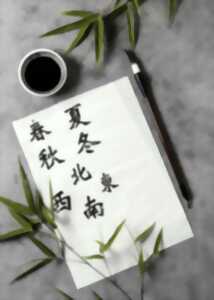 春夏
秋冬
北東
西南